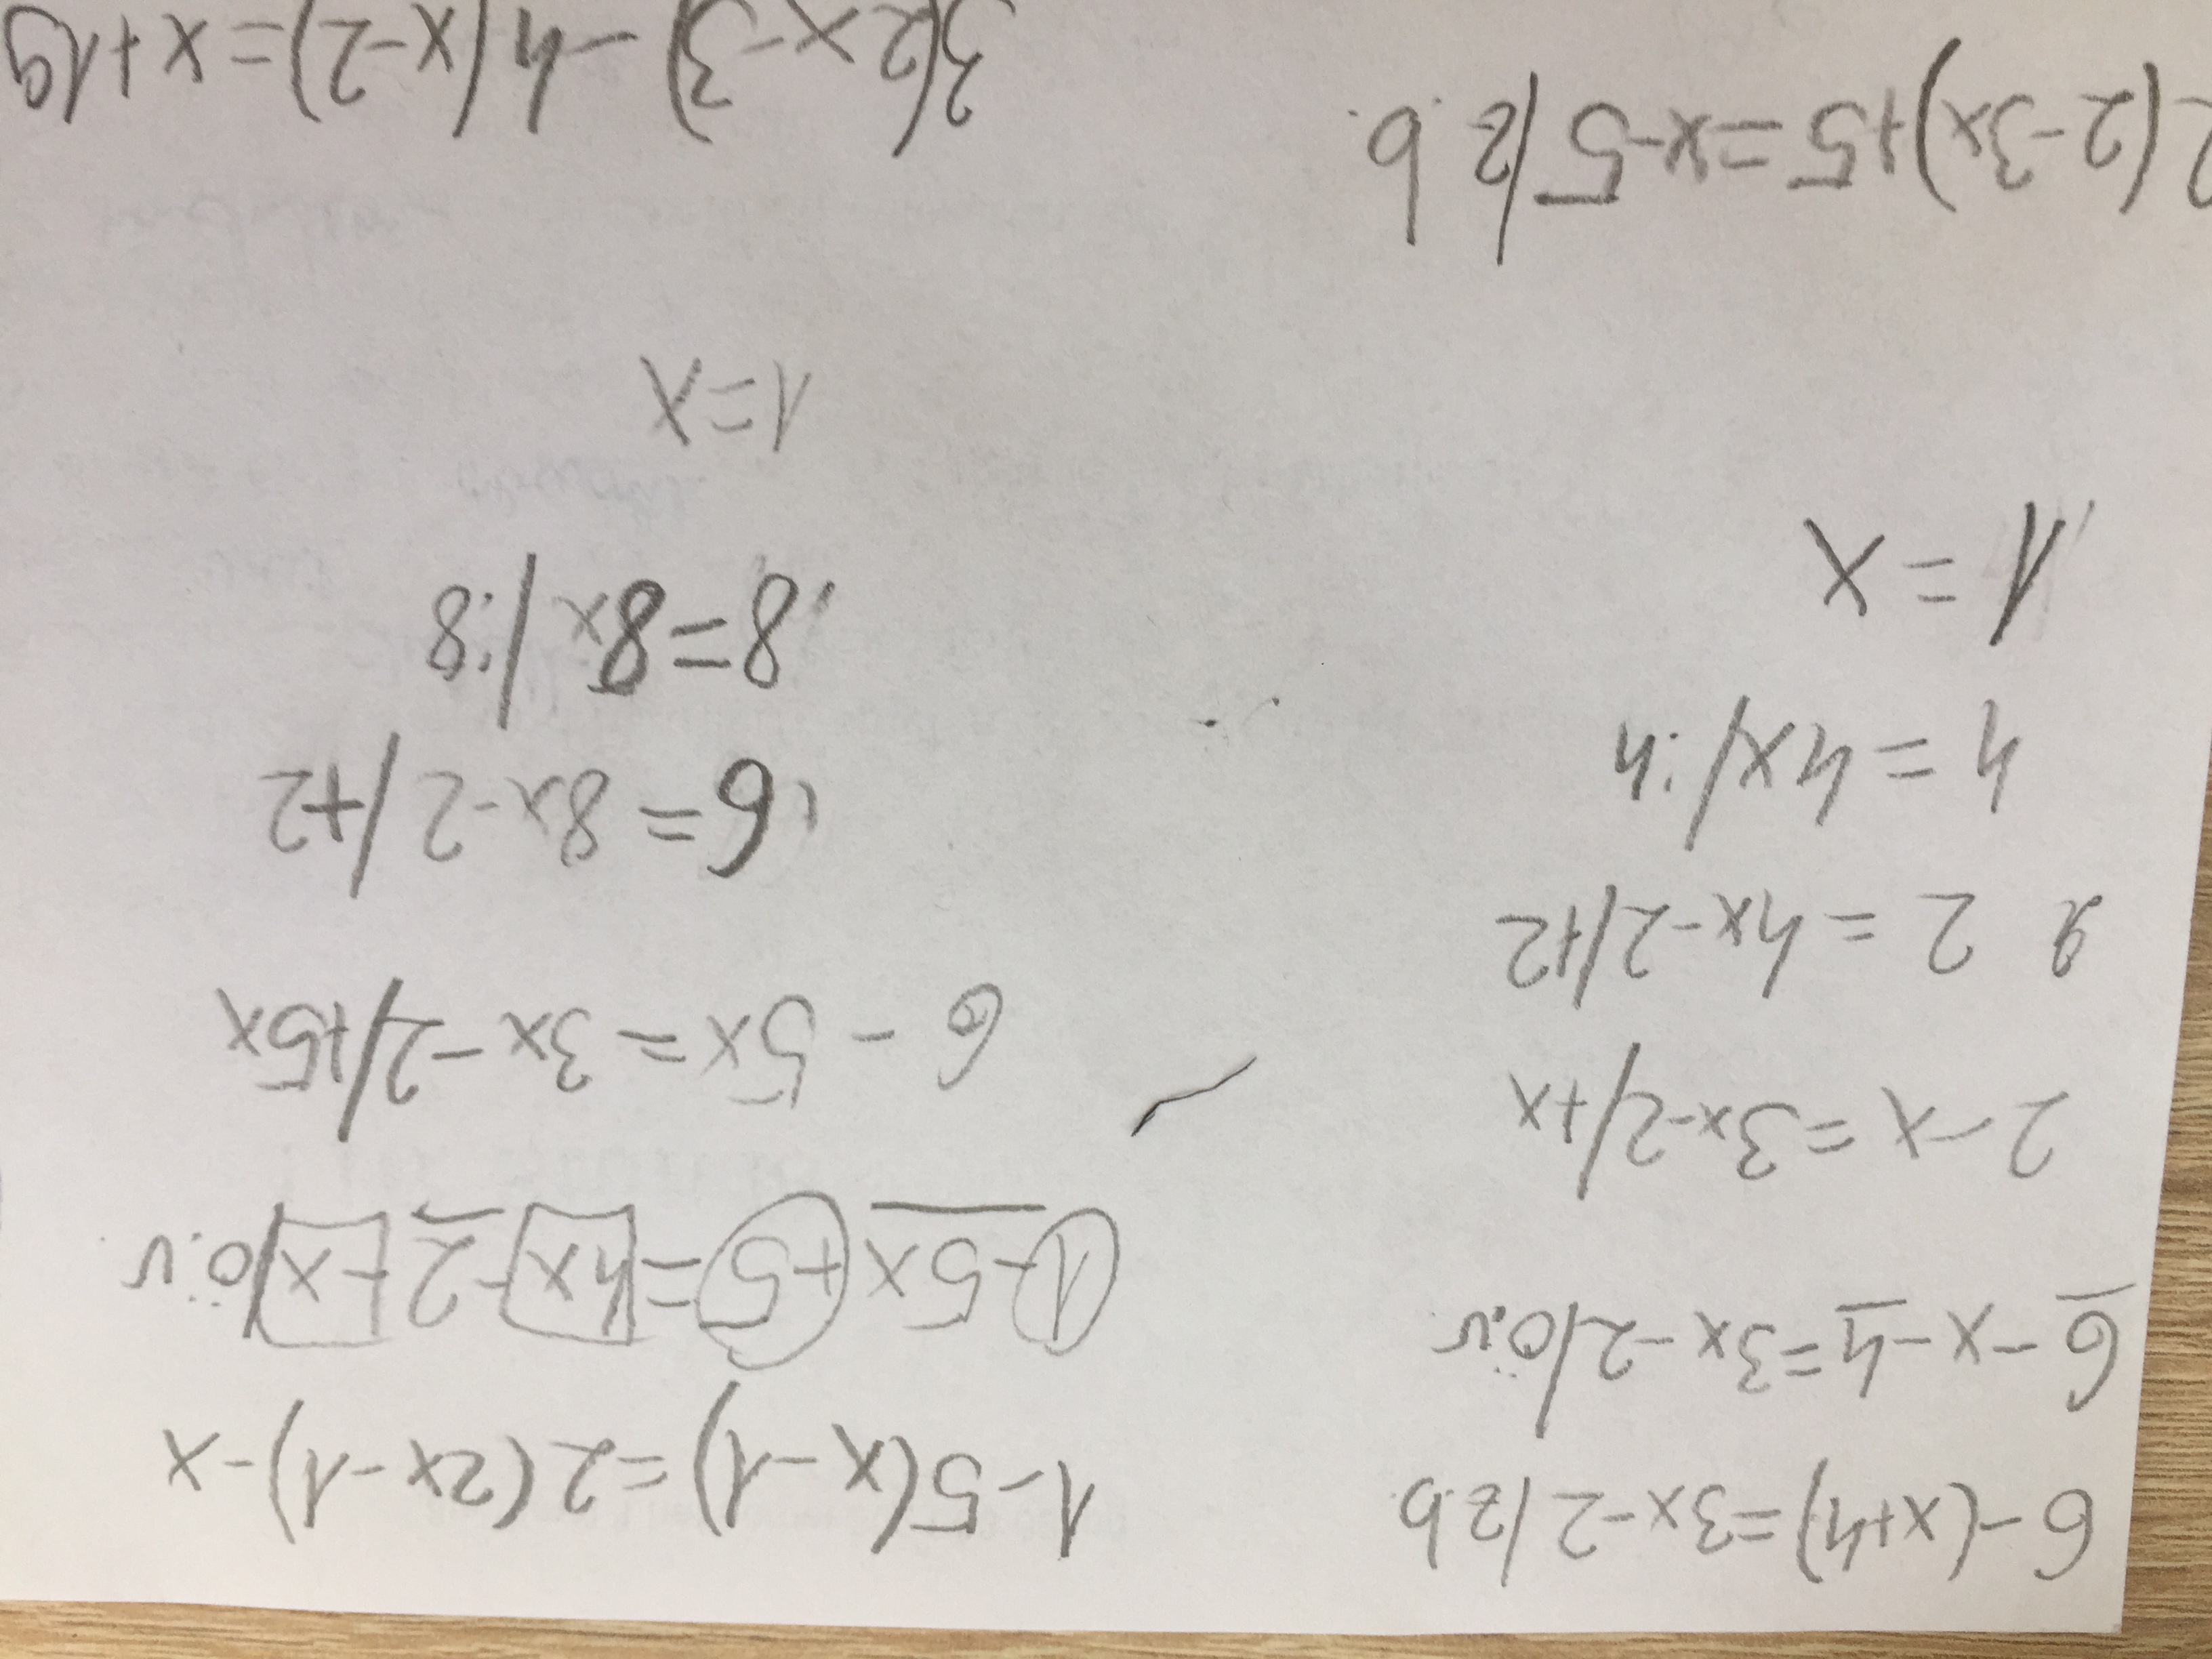 6-(x+4)=3x-2/zb
6-x-4=3x-2/ö.v
2-x=3x-2/+x
2 2=4x-2/+2
4=4x/:4
1=x
2(2-3x)+5=x-5/z.b.
1-5(x-1)=2(2x-1)-x
1-5x+5=4x-2-x/ö.v.
6-5x=3x-2/+5x
6=8x-2/+2
8=8x/:8
1=x
3(2x-3)-4(x-2)=x+19